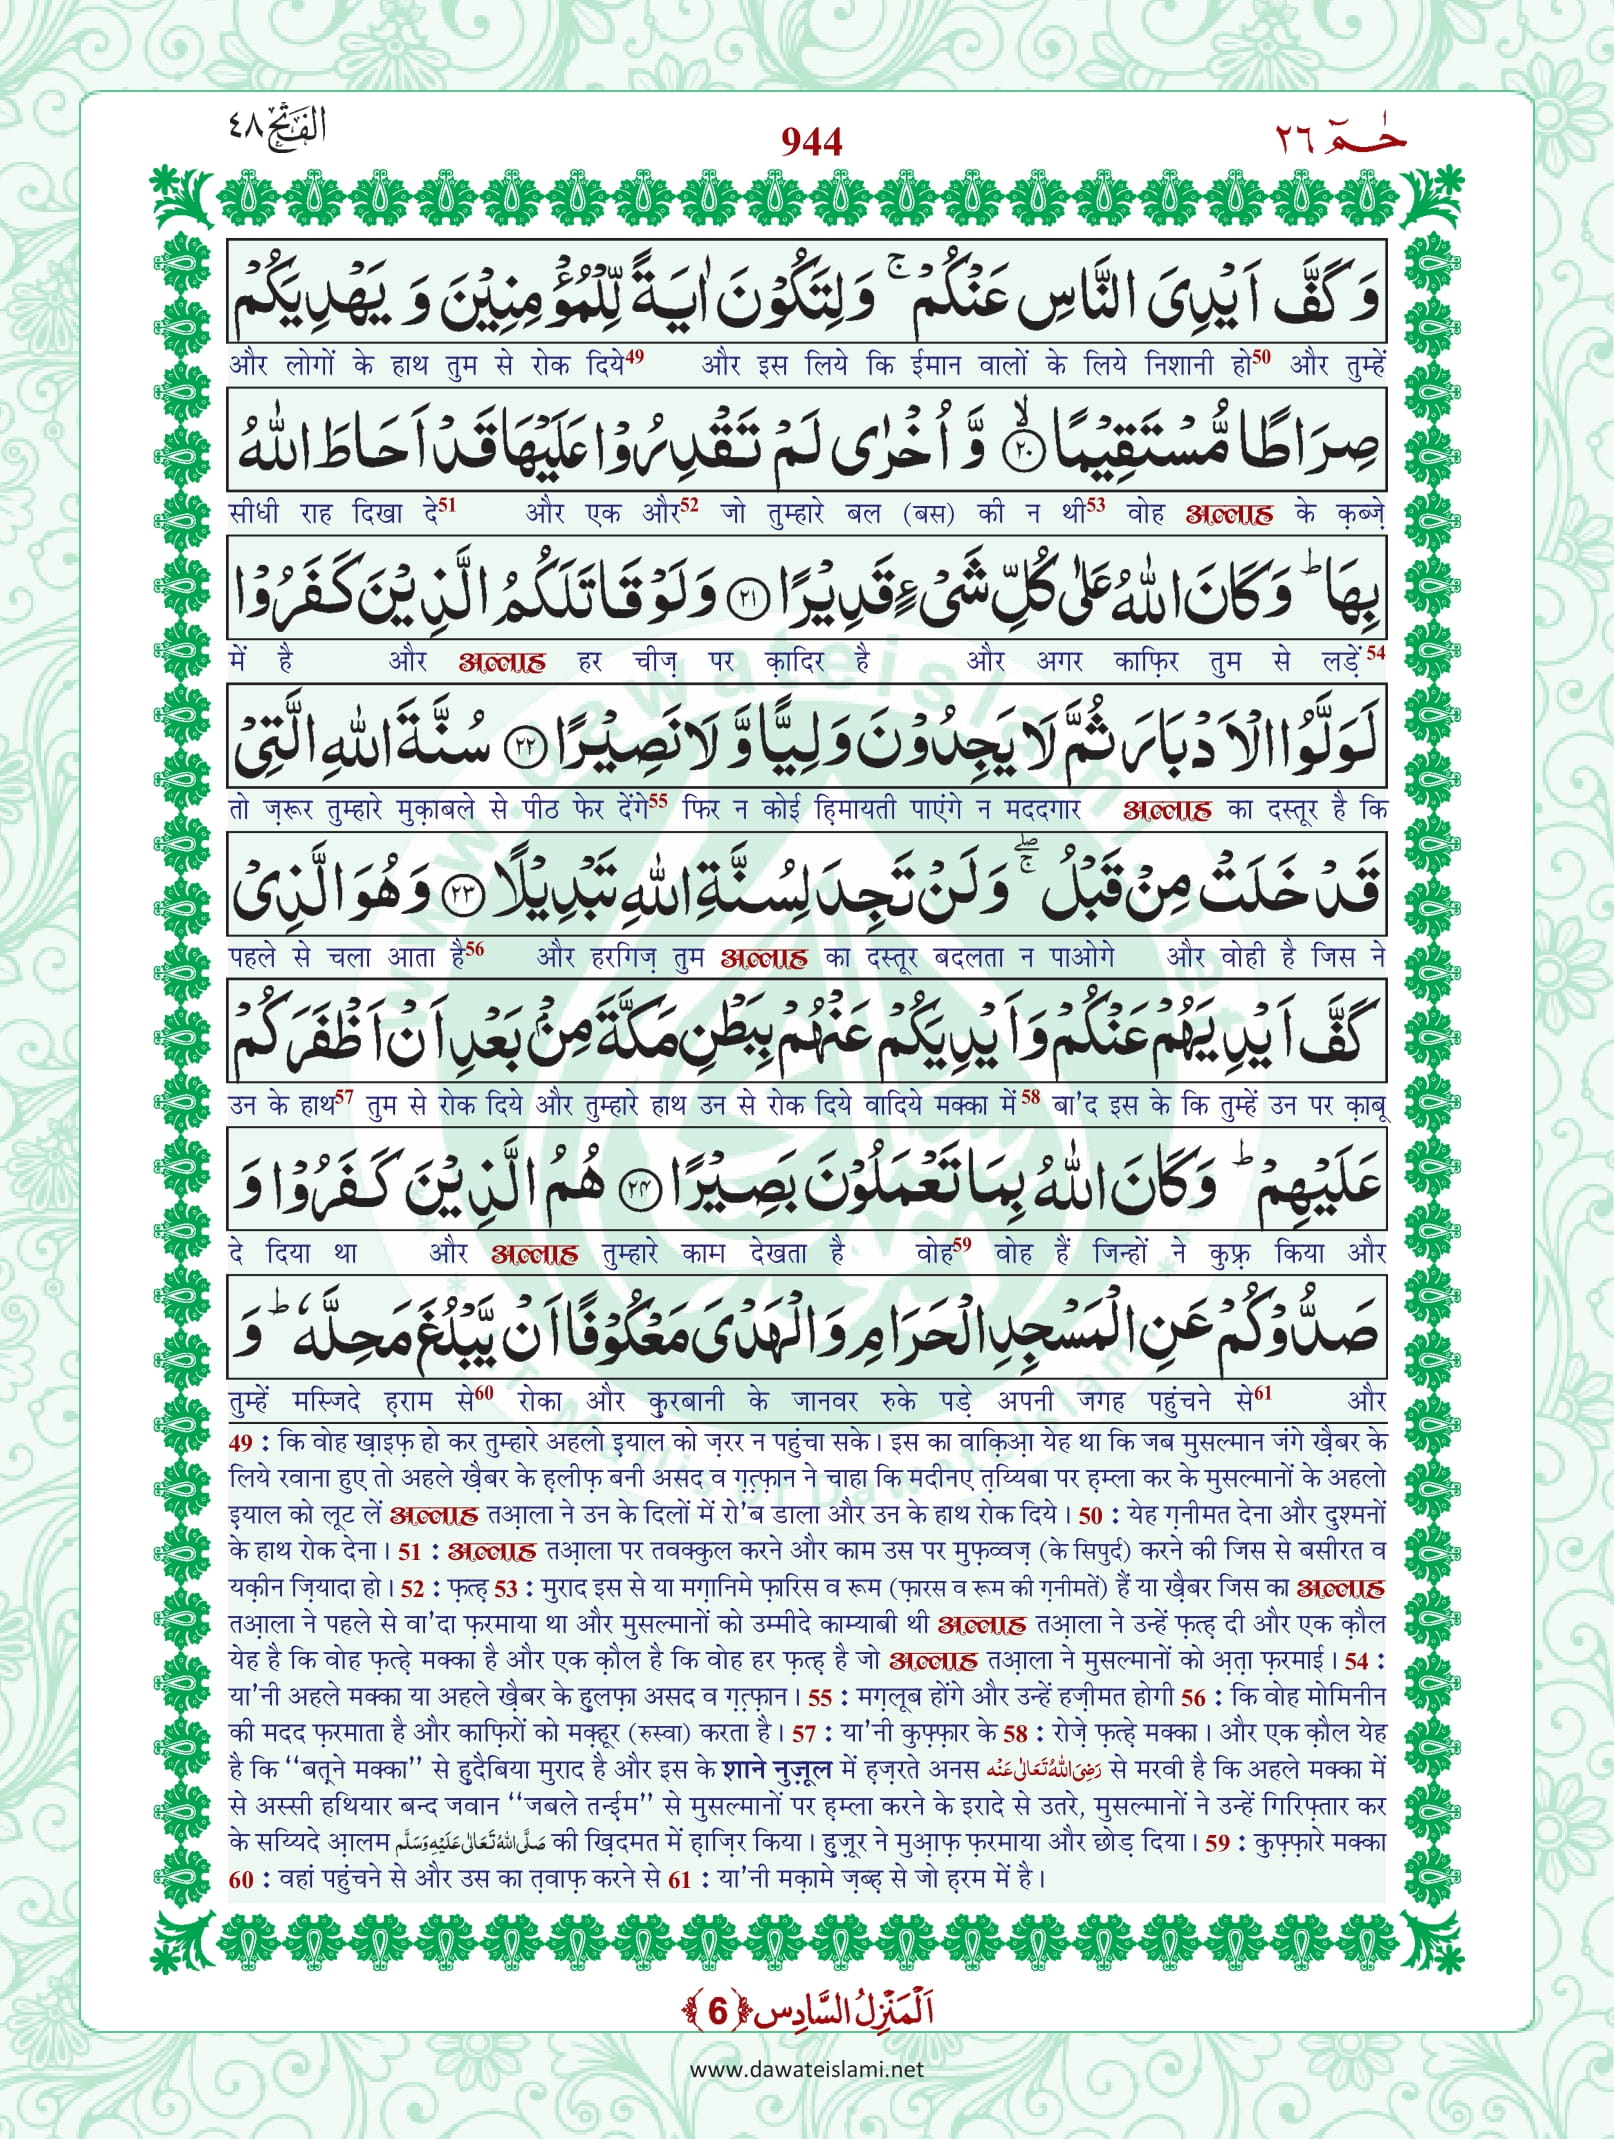 حٰمٓ ٢٦
944
الفتح ٤٨
وَ كَفَّ اَیْدِیَ النَّاسِ عَنْكُمْ ۚ وَ لِتَكُوْنَ اٰیَةً لِّلْمُؤْمِنِیْنَ وَ یَهْدِیَكُمْ
और लोगों के हाथ तुम से रोक दिये49 और इस लिये कि ईमान वालों के लिये निशानी हो50 और तुम्हें
صِرَاطًا مُّسْتَقِیْمًا ۙ﴿۲۰﴾ وَّ اُخْرٰى لَمْ تَقْدِرُوْا عَلَیْهَا قَدْ اَحَاطَ اللّٰهُ
सीधी राह दिखा दे51 और एक और52 जो तुम्हारे बल (बस) की न थी53 वोह अल्लाह के क़ब्ज़े
بِهَا ؕ وَ كَانَ اللّٰهُ عَلٰى كُلِّ شَیْءٍ قَدِیْرًا ﴿۲۱﴾ وَ لَوْ قٰتَلَكُمُ الَّذِیْنَ كَفَرُوْا
में है और अल्लाह हर चीज़ पर क़ादिर है और अगर काफ़िर तुम से लड़ें54
لَوَلَّوُا الْاَدْبَارَ ثُمَّ لَا یَجِدُوْنَ وَلِیًّا وَّ لَا نَصِیْرًا ﴿۲۲﴾ سُنَّةَ اللّٰهِ الَّتِیْ
तो ज़रूर तुम्हारे मुक़ाबले से पीठ फेर देंगे55 फिर न कोई हि़मायती पाएंगे न मददगार अल्लाह का दस्तूर है कि
قَدْ خَلَتْ مِنْ قَبْلُ ۖۚ وَ لَنْ تَجِدَ لِسُنَّةِ اللّٰهِ تَبْدِیْلًا ﴿۲۳﴾ وَ هُوَ الَّذِیْ
पहले से चला आता है56 और हरगिज़ तुम अल्लाह का दस्तूर बदलता न पाओगे और वोही है जिस ने
كَفَّ اَیْدِیَهُمْ عَنْكُمْ وَ اَیْدِیَكُمْ عَنْهُمْ بِبَطْنِ مَكَّةَ مِنْۢ بَعْدِ اَنْ اَظْفَرَكُمْ
उन के हाथ57 तुम से रोक दिये और तुम्हारे हाथ उन से रोक दिये वादिये मक्का में58 बा'द इस के कि तुम्हें उन पर क़ाबू
عَلَیْهِمْ ؕ وَ كَانَ اللّٰهُ بِمَا تَعْمَلُوْنَ بَصِیْرًا ﴿۲۴﴾ هُمُ الَّذِیْنَ كَفَرُوْا وَ
दे दिया था और अल्लाह तुम्हारे काम देखता है वोह59 वोह हैं जिन्हों ने कुफ़्र किया और
صَدُّوْكُمْ عَنِ الْمَسْجِدِ الْحَرَامِ وَ الْهَدْیَ مَعْكُوْفًا اَنْ یَّبْلُغَ مَحِلَّهٗ ؕ وَ
तुम्हें मस्जिदे ह़राम से60 रोका और क़ुरबानी के जानवर रुके पड़े अपनी जगह पहुंचने से61 और
49 : कि वोह ख़ाइफ़ हो कर तुम्हारे अहलो इ़याल को ज़रर न पहुंचा सके। इस का वाक़िआ़ येह था कि जब मुसल्मान जंगे ख़ैबर के
लिये रवाना हुए तो अहले ख़ैबर के ह़लीफ़ बनी असद व ग़त़्फ़ान ने चाहा कि मदीनए त़य्यिबा पर ह़म्ला कर के मुसल्मानों के अहलो
इ़याल को लूट लें अल्लाह तआ़ला ने उन के दिलों में रो'ब डाला और उन के हाथ रोक दिये। 50 : येह ग़नीमत देना और दुश्मनों
के हाथ रोक देना। 51 : अल्लाह तआ़ला पर तवक्कुल करने और काम उस पर मुफ़व्वज़ (के सिपुर्द) करने की जिस से बसीरत व
यक़ीन ज़ियादा हो। 52 : फ़त्ह़ 53 : मुराद इस से या मग़ानिमे फ़ारिस व रूम (फ़ारस व रूम की ग़नीमतें) हैं या ख़ैबर जिस का अल्लाह
तआ़ला ने पहले से वा'दा फ़रमाया था और मुसल्मानों को उम्मीदे काम्याबी थी अल्लाह तआ़ला ने उन्हें फ़त्ह़ दी और एक क़ौल
येह है कि वोह फ़त्ह़े मक्का है और एक क़ौल है कि वोह हर फ़त्ह़ है जो अल्लाह तआ़ला ने मुसल्मानों को अ़त़ा फ़रमाई। 54 :
या'नी अहले मक्का या अहले ख़ैबर के ह़ुलफ़ा असद व ग़त़्फ़ान। 55 : मग़्लूब होंगे और उन्हें हज़ीमत होगी 56 : कि वोह मोमिनीन
की मदद फ़रमाता है और काफ़िरों को मक़्हूर (रुस्वा) करता है। 57 : या'नी कुफ़्फ़ार के 58 : रोज़े फ़त्ह़े मक्का। और एक क़ौल येह
है कि ‘‘बत़्ने मक्का’’ से ह़ुदैबिया मुराद है और इस के शाने नुज़ूल में ह़ज़रते अनस رَضِیَ اللّٰهُ تَعَالٰی عَنْه से मरवी है कि अहले मक्का में
से अस्सी हथियार बन्द जवान ‘‘जबले तन्ई़म’’ से मुसल्मानों पर ह़म्ला करने के इरादे से उतरे, मुसल्मानों ने उन्हें गिरिफ़्तार कर
के सय्यिदे आ़लम صَلَّی اللّٰهُ تَعَالٰی عَلَیْهِ وَسَلَّم की ख़िदमत में ह़ाज़िर किया। ह़ुज़ूर ने मुआ़फ़ फ़रमाया और छोड़ दिया। 59 : कुफ़्फ़ारे मक्का
60 : वहां पहुंचने से और उस का त़वाफ़ करने से 61 : या'नी मक़ामे ज़ब्ह़ से जो ह़रम में है।
اَلْمَنْزِلُ السَّادِس ﴿6﴾
www.dawateislami.net